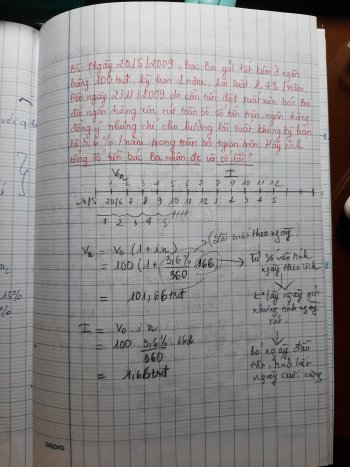 B5. Ngày 20/5/2009, bác Ba gửi tiết kiệm ở ngân
hàng 100 trđ, kỳ hạn 1 năm, lãi suất 8,4% /năm.
Đến ngày 2/11/2009 do cần tiền đột xuất nên bác Ba
đến ngân hàng xin rút toàn bộ số tiền trên, ngân hàng
đồng ý nhưng chỉ cho hưởng lãi suất không kỳ hạn
là 3,6% /năm trong toàn bộ tgian trên. Hãy tính
tổng số tiền bác Ba nhận đc và số lãi?
Vn I
1 2 3 4 5 6 7 8 9 10 11 12
20/5 5 6 7 8 9 10 11 12 1 2 3 4 5
1 2 3 4 5
(lãi suất theo ngày)
Vn = V0 (1 + in)
= 100 (1 + 3,6%/360 . 166)
Từ số năm tính
ngày theo lịch
= 101,66 trđ
k° lấy ngày gửi
nhưng tính ngày
rút
I = V0 . i n
= 100 . 3,6%/360 . 166
= 1,66 trđ
bỏ ngày đầu
tiên, tính lại
ngày cuối cùng